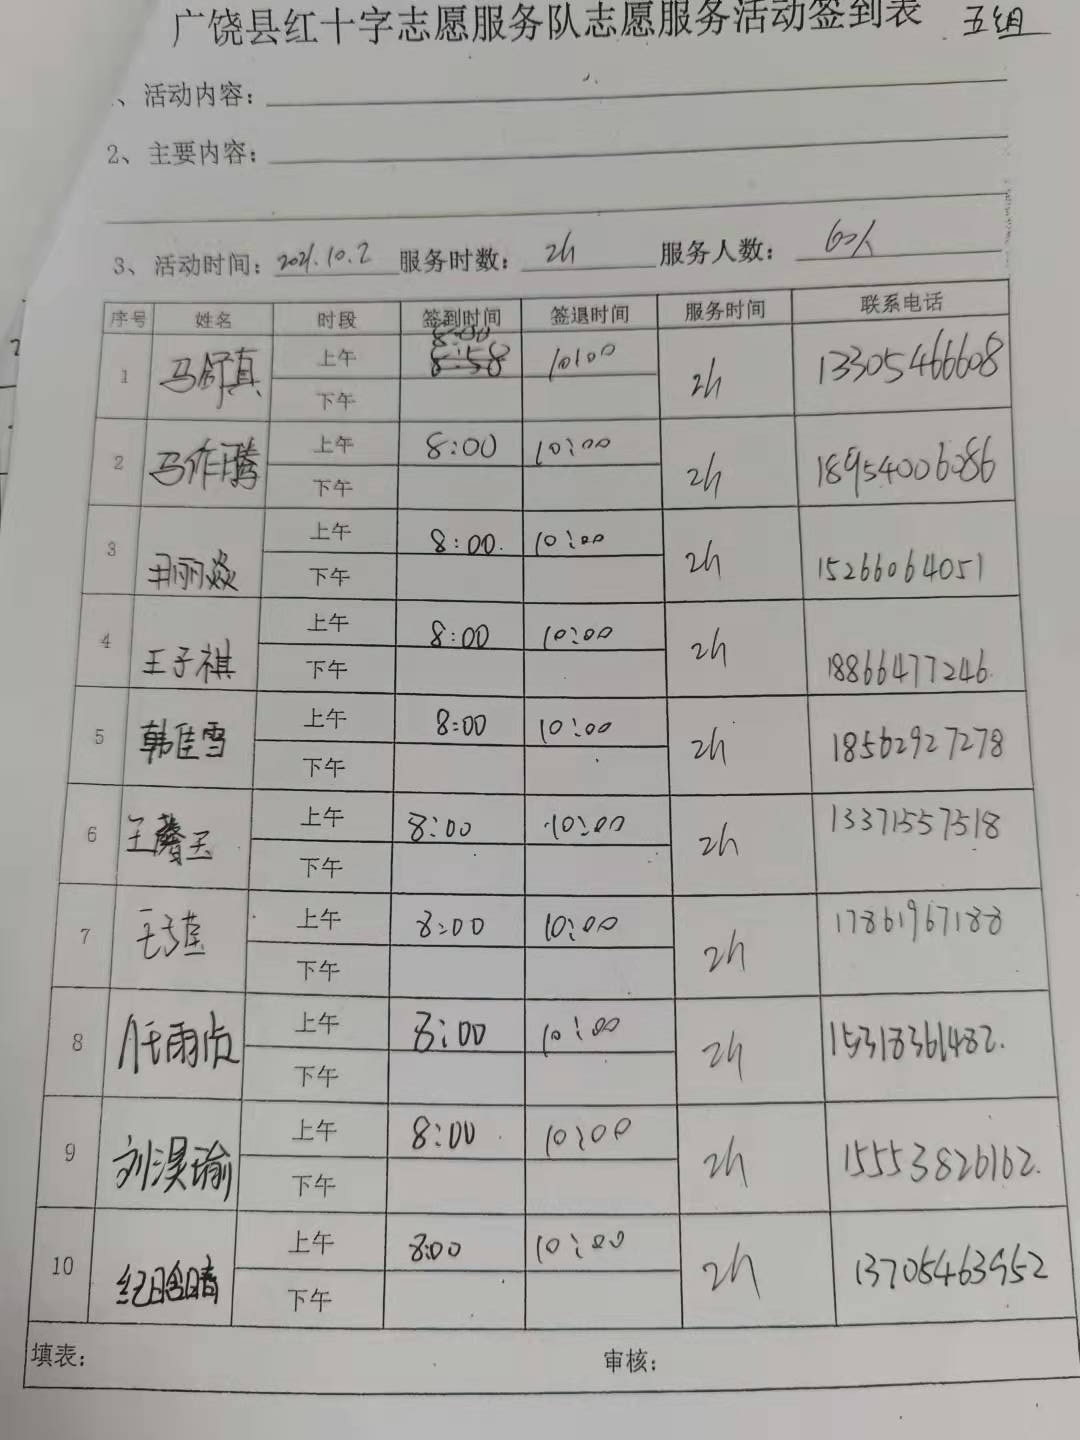 广饶县红十字志愿服务队志愿服务活动签到表 五组
、活动内容：
2、主要内容：
3、活动时间：2021.10.2 服务时数：2h 服务人数：60人
序号 姓名 时段 签到时间 签退时间 服务时间 联系电话
8:00
1 马舒真 上午 8:58 10:00 2h 13305466608
下午
2 马作腾 上午 8:00 10:00 2h 18954006086
下午
3 丽焱 上午 8:00 10:00 2h 15266064051
下午
4 王子祺 上午 8:00 10:00 2h 18866477246
下午
5 韩佳雪 上午 8:00 10:00 2h 18562927278
下午
6 王馨玉 上午 8:00 10:00 2h 13371557518
下午
7 上午 8:00 10:00 2h 17861967188
下午
8 任雨贞 上午 8:00 10:00 2h 15318361482.
下午
9 刘淏瑜 上午 8:00 10:00 2h 15553826162.
下午
10 纪晗晴 上午 8:00 10:00 2h 13705463952
下午
填表： 审核：